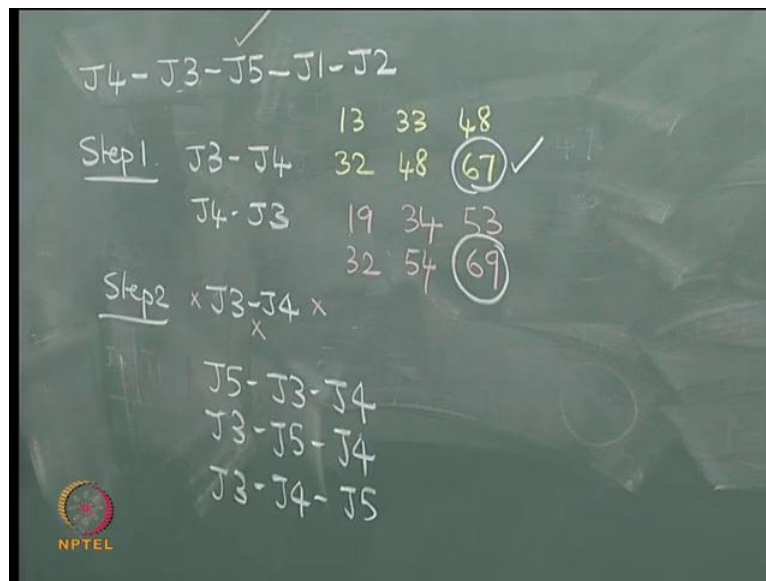 J4-J3-J5-J1-J2
13 33 48
Step1. J3-J4 32 48 67
J4-J3 19 34 53
32 54 69
Step2 x J3-J4 x
x
J5-J3-J4
J3-J5-J4
J3-J4-J5
NPTEL